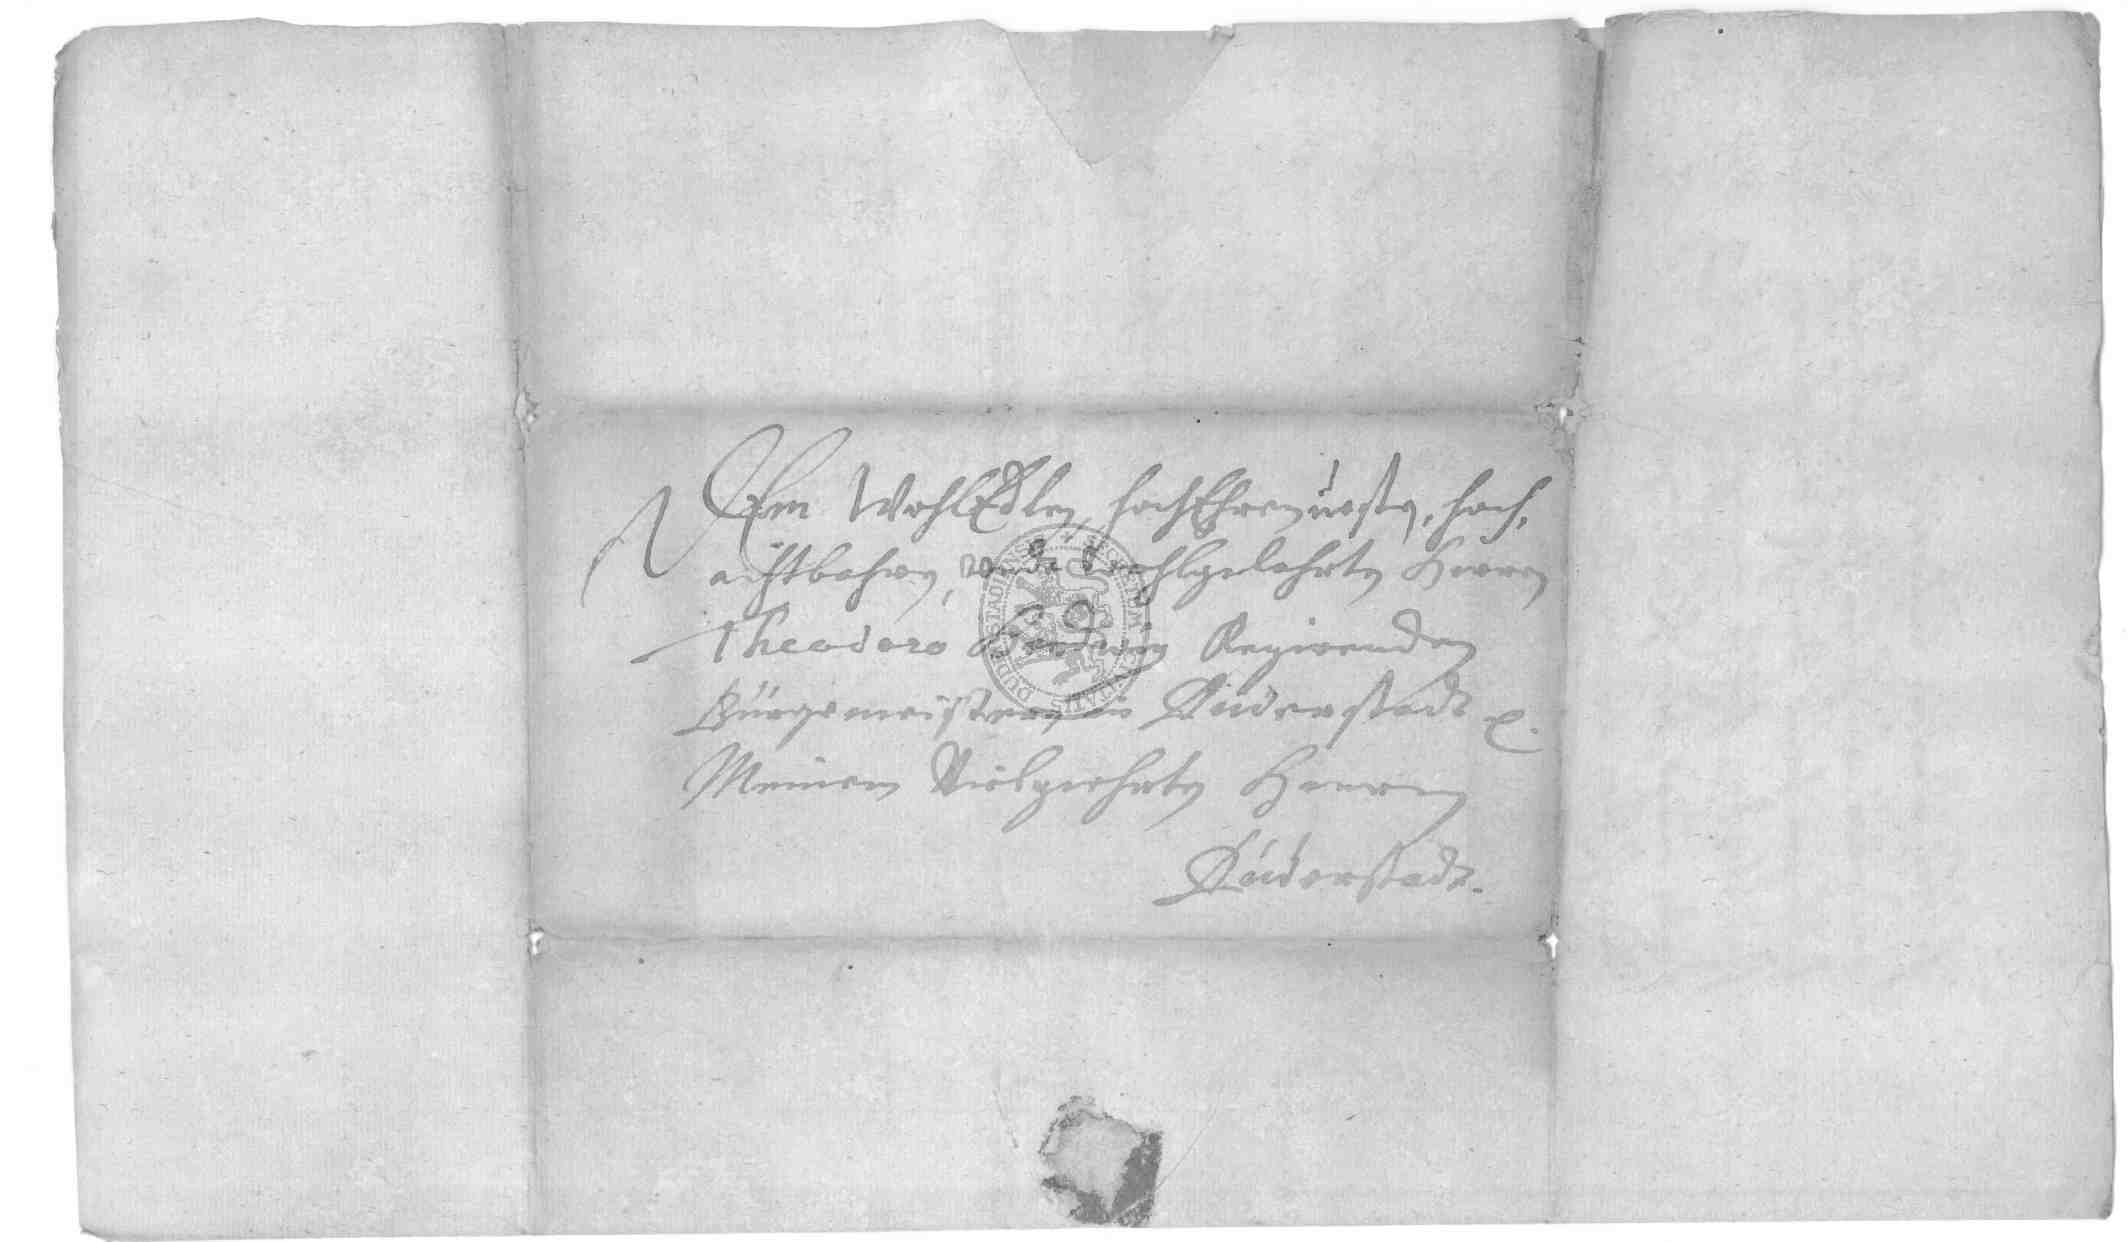 Dem WohlEdlen, hochEhrenvesten, hoch,
achtbahren, undt wohlgelehrten Herren
Theodoro Regirenden
Bürgemeistern in Duderstadt
Meinem Vielgeehrten Herren
Duderstadt.
SECRETUM CIVITATIS DUDERSTADIENSIS